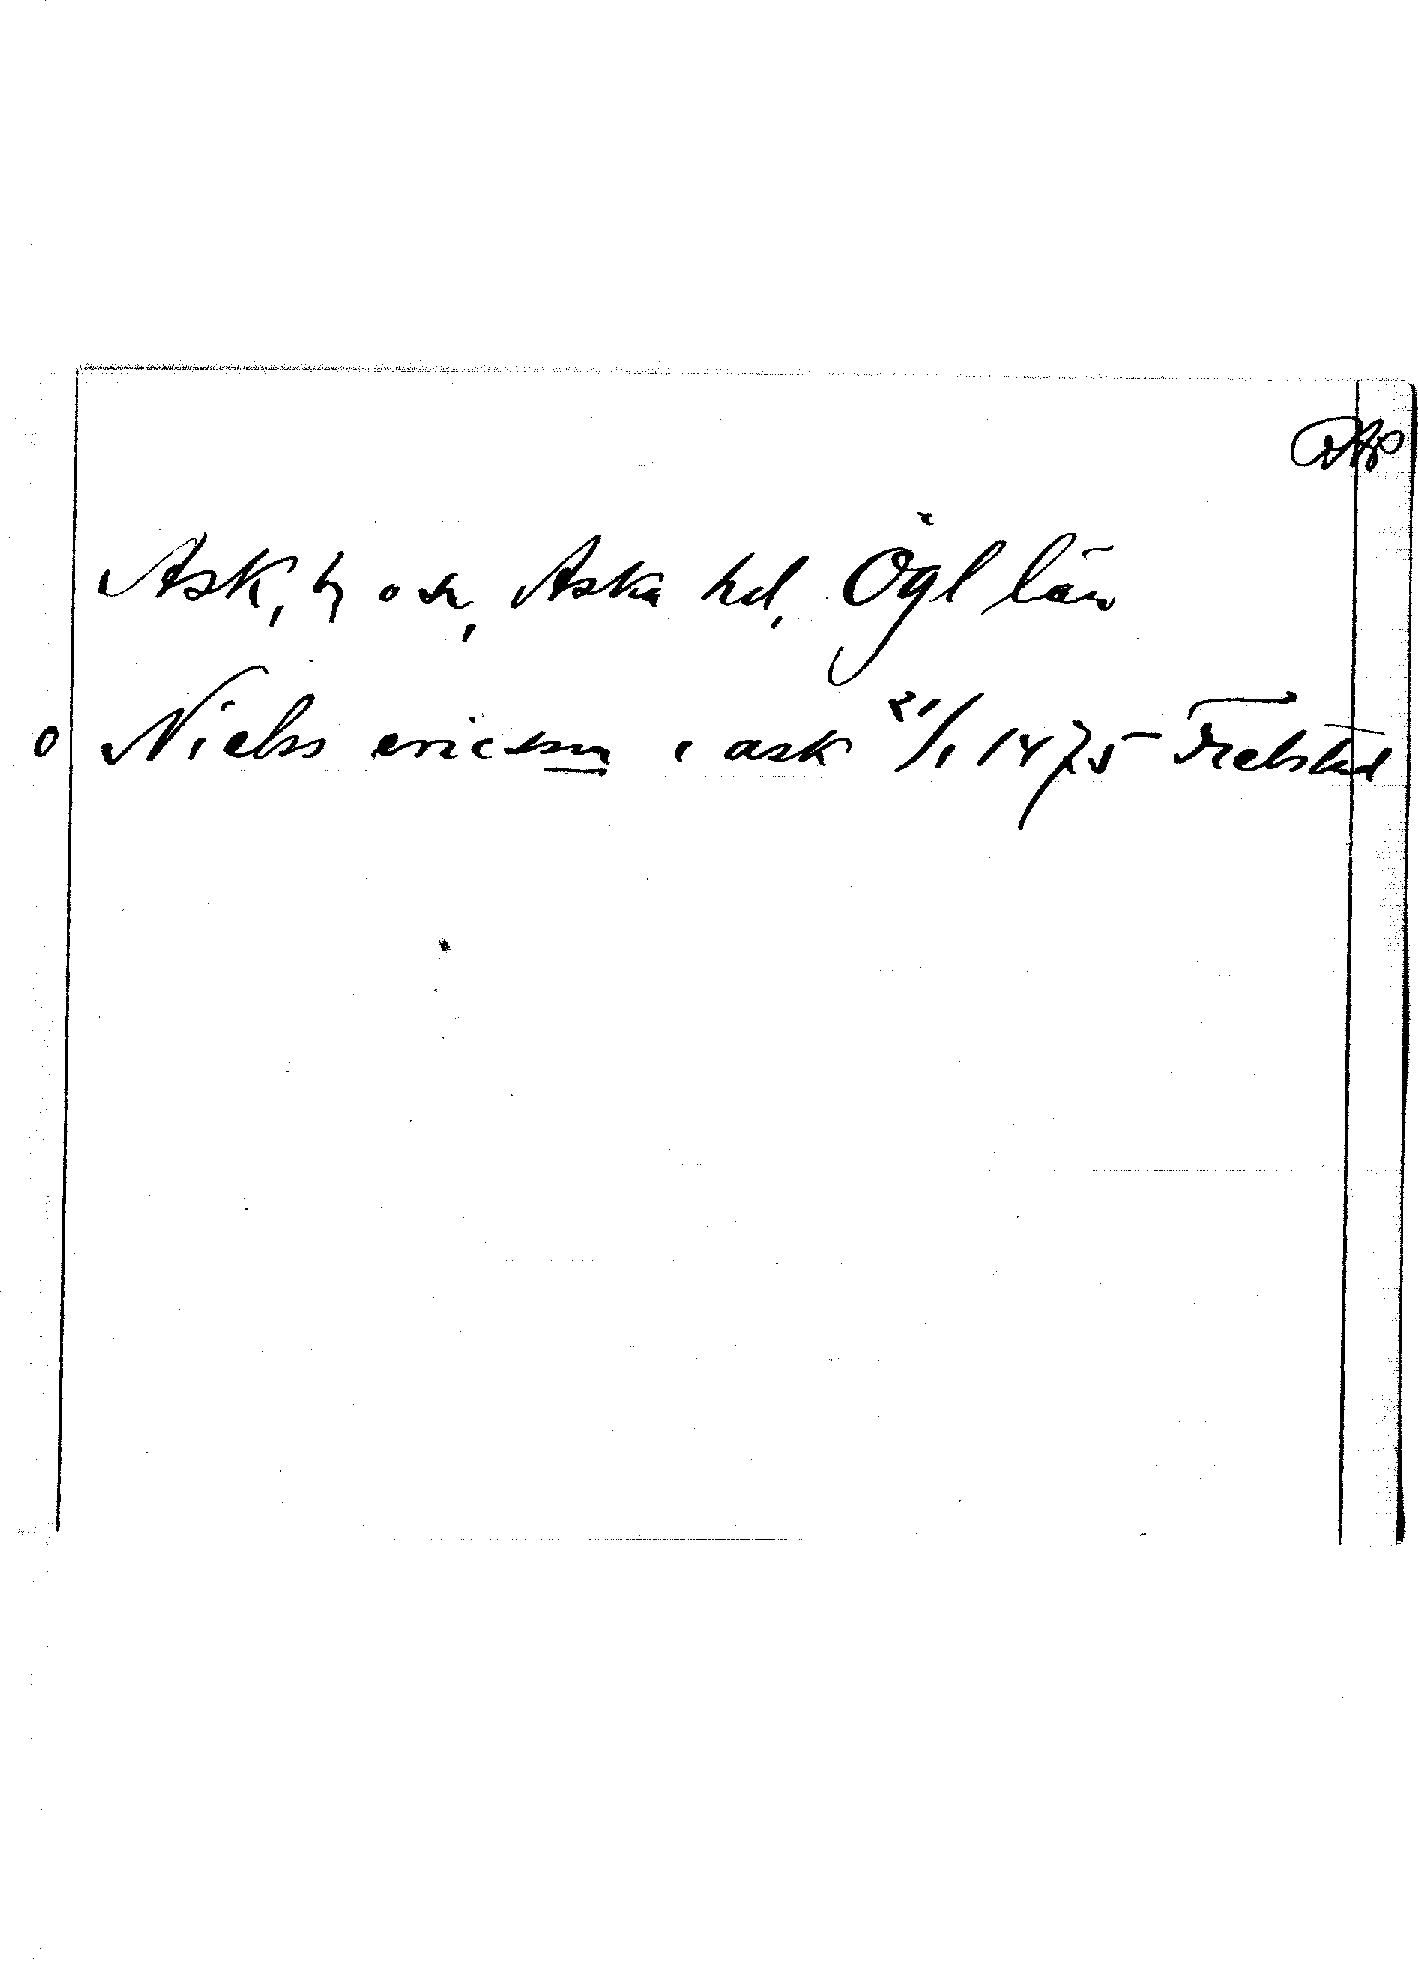 RAp
Ask, by o sn, Aska hd, Ögl län
o Nielss ericsson i ask 21/1 1475 Trebstad